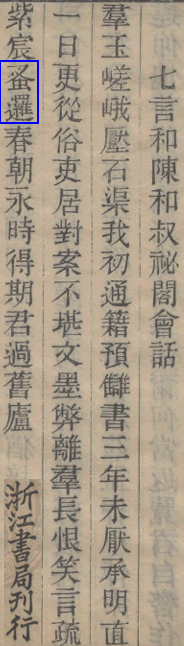 七言和陳和叔祕閣會話
羣玉嵯峨壓石渠我初通籍預讎書三年未厭承明直
一日更從俗吏居對案不堪文墨弊離羣長恨笑言疏
紫宸蚤邏春朝永時得期君過舊廬
浙江書局刊行